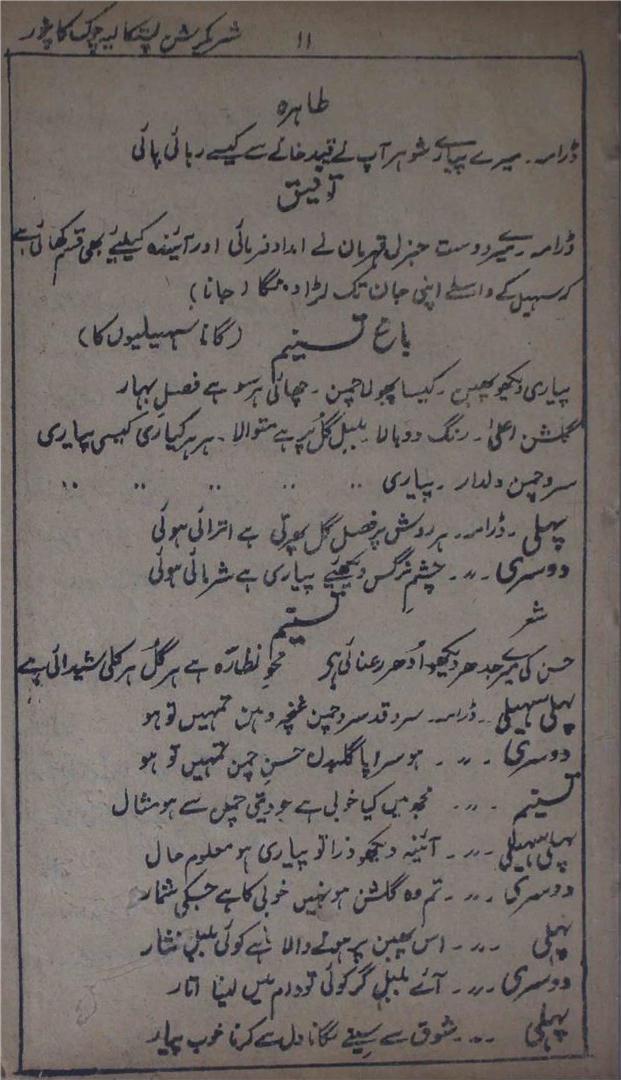 ۱۱ شری کرشن پستکالیہ چوک کانپور
طاہرہ
ڈرامہ۔ میرے پیارے شوہر آپ نے قید خانے سے کیسے رہائی پائی
آفیق
ڈرامہ۔ میرے دوست جنرل قہرمان نے امداد فرمائی اور آئیندہ کیلیے بھی قسم کھائی ہے
کہ سہیل کے واسطے اپنی جان تک لڑا دیگا (جانا)
باغ تسنیم (گانا سہیلیوں کا)
پیاری دیکھو پھبن۔ کیسا پھولا چمن۔ چھائی ہر سو ہے فصل بہار
گلشن اعلیٰ۔ رنگ دوبالا۔ بلبل گل پر ہے متوالا۔ ہر ہر کیاری کیسی پیاری
سرو چمن دلدار۔ پیاری ,, ,, ,, ,, ,,
پہلی۔ ڈرامہ۔ ہر روش پر فصل گل پھرتی ہے اترائی ہوئی
دوسری۔ ,,۔ چشم نرگس دیکھیے پیاری ہے شرمائی ہوئی
شعر تسنیم
حسن کی میرے جدھر دیکھو اُدھر رعنائی ہے محو نظارہ ہے ہر گُل ہر کلی شیدائی ہے
پہلی سہیلی۔ ڈرامہ۔ سرو قد سرو چمن غنچہ دہن تمہیں تو ہو
دوسری۔ ,,۔ ہو سراپا گلبدن حسن چمن تمہیں تو ہو
تسنیم ۔ ,,۔ مجھ میں کیا خوبی ہے جو دیتی چمن سے ہو مثال
پہلی سہیلی۔ ,,۔ آئینہ دیکھو ذرا تو پیاری ہو معلوم حال
دوسری ۔ ,,۔ تم وہ گلشن ہو نہیں خوبی کا ہے جسکی شمار
پہلی ۔ ,,۔ اس پھبن پر ہونے والا ہے کوئی بلبل نثار
دوسری ۔ ,,۔ آئے بلبل گر کوئی تو دام میں لینا اتار
پہلی ۔ ,,۔ شوق سے سینے لگانا دل سے کرنا خوب پیار